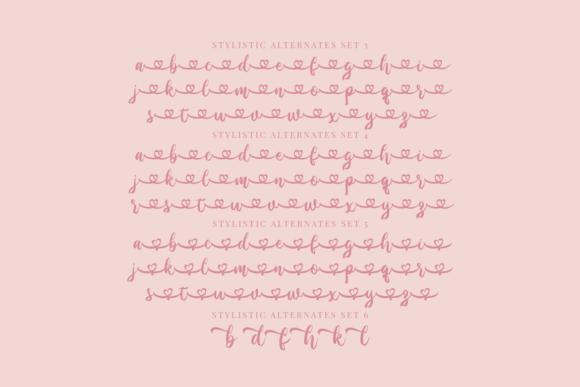 STYLISTIC ALTERNATES SET 3
a b c d e f g h i
j k l m n o p q r
s t u v w x y z
STYLISTIC ALTERNATES SET 4
a b c d e f g h i
j k l m n o p q r
r s t u v w x y z
STYLISTIC ALTERNATES SET 5
a b c d e f g h i
j k l m n o p q r
s t u v w x y z
STYLISTIC ALTERNATES SET 6
b d f h k l